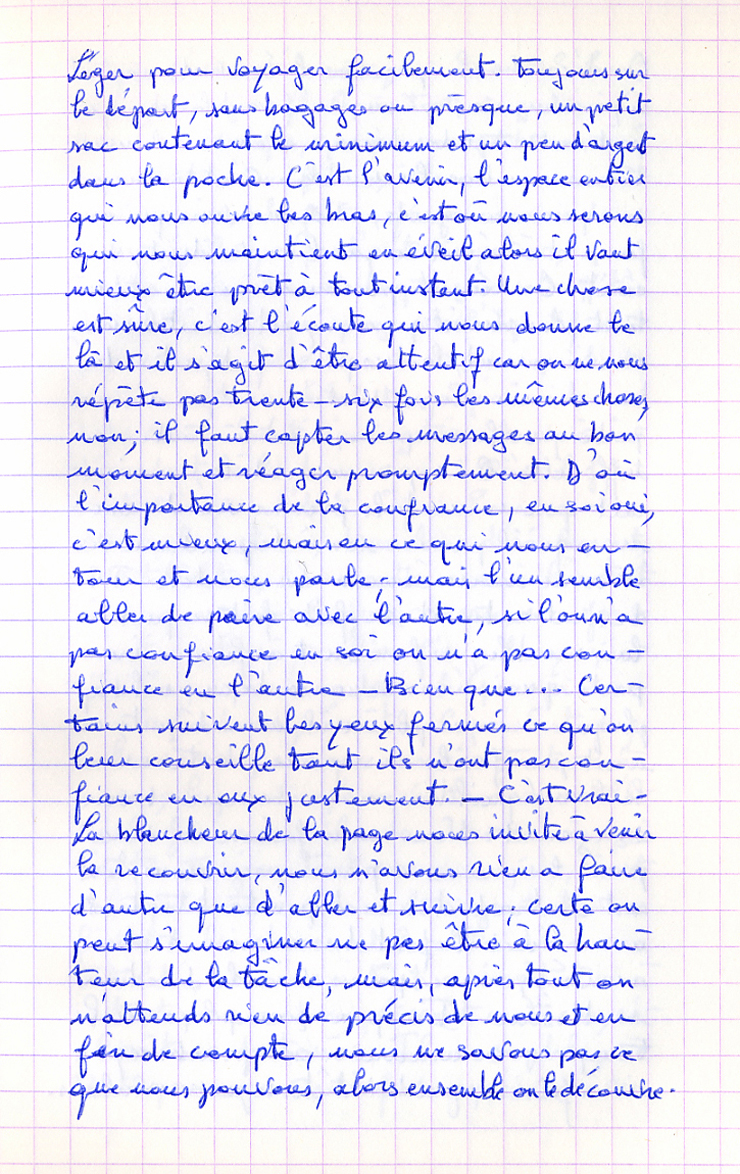 Léger pour voyager facilement. Toujours sur
le départ, sans bagages ou presque, un petit
sac contenant le minimum et un peu d'argent
dans la poche. C'est l'avenir, l'espace entier
qui nous ouvre les bras, c'est où nous serons
qui nous maintient en éveil alors il vaut
mieux être prêt à tout instant. Une chose
est sûre, c'est l'écoute qui nous donne le
là et il s'agit d'être attentif car on ne nous
répète pas trente-six fois les mêmes choses,
non; il faut capter les messages au bon
moment et réagir promptement. D'où
l'importance de la confiance, en soi oui,
c'est mieux, mais en ce qui nous en-
toure et nous parle; mais l'un semble
aller de paire avec l'autre, si l'on n'a
pas confiance en soi on n'a pas con-
fiance en l'autre - Bien que... Cer-
tains suivent les yeux fermés ce qu'on
leur conseille tant ils n'ont pas con-
fiance en eux justement. - C'est vrai -
La blancheur de la page nous invite à venir
la recouvrir, nous n'avons rien a faire
d'autre que d'aller et suivre; certe on
peut s'imaginer ne pas être à la hau-
teur de la tâche, mais, après tout on
n'attends rien de précis de nous et en
fin de compte, nous ne savons pas ce
que nous pouvons, alors ensemble on le découvre.